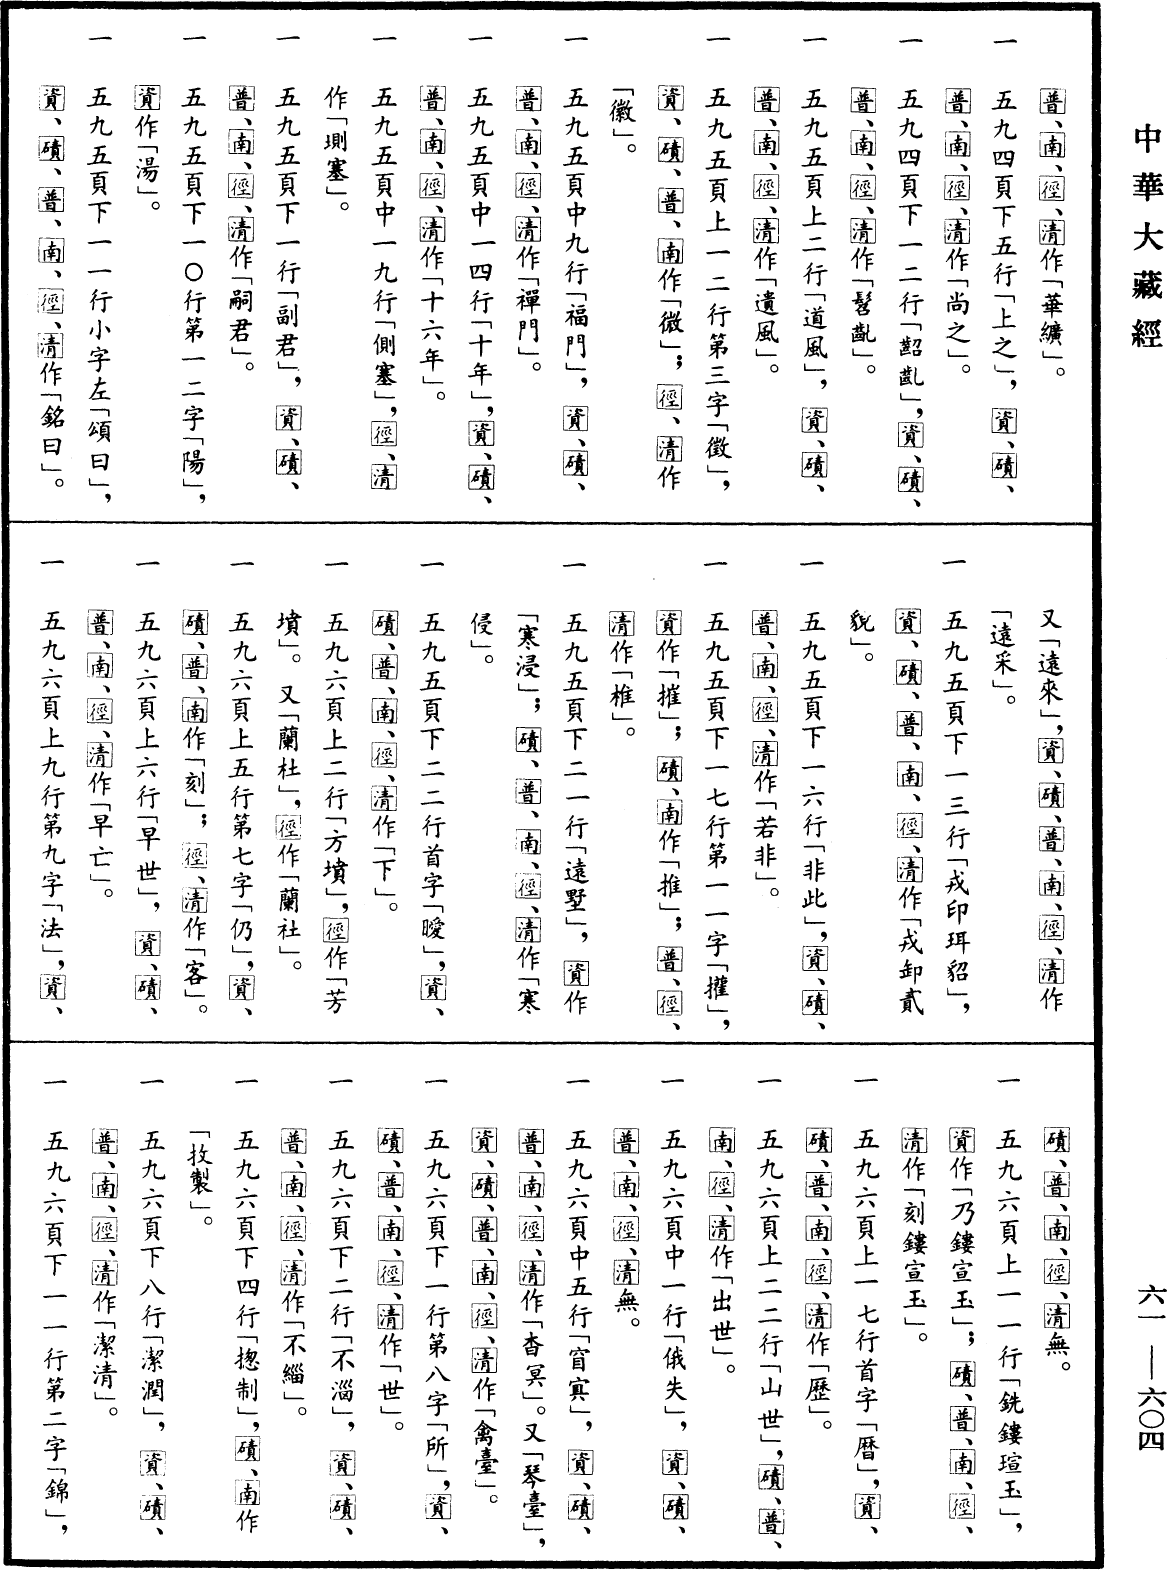 中華大藏經
普、南、徑、清作「華纊」。
一　五九四頁下五行「上之」，資、磧、
普、南、徑、清作「尚之」。
一　五九四頁下一二行「齠齓」，資、磧、
普、南、徑、清作「髫齓」。
一　五九五頁上二行「道風」，資、磧、
普、南、徑、清作「遺風」。
一　五九五頁上一二行第三字「徵」，
資、磧、普、南作「微」；徑、清作
「徽」。
一　五九五頁中九行「福門」，資、磧、
普、南、徑、清作「禪門」。
一　五九五頁中一四行「十年」，資、磧、
普、南、徑、清作「十六年」。
一　五九五頁中一九行「側塞」，徑、清
作「堲塞」。
一　五九五頁下一行「副君」，資、磧、
普、南、徑、清作「嗣君」。
一　五九五頁下一〇行第一二字「陽」，
資作「湯」。
一　五九五頁下一一行小字左「頌曰」，
資、磧、普、南、徑、清作「銘曰」。
又「遠來」，資、磧、普、南、徑、清作
「遠采」。
一　五九五頁下一三行「戎印珥貂」，
資、磧、普、南、徑、清作「戎卸貳
貌」。
一　五九五頁下一六行「非此」，資、磧、
普、南、徑、清作「若非」。
一　五九五頁下一七行第一一字「攉」，
資作「摧」；磧、南作「推」；普、徑、
清作「椎」。
一　五九五頁下二一行「遠墅」，資作
「寒浸」；磧、普、南、徑、清作「寒
侵」。
一　五九五頁下二二行首字「曖」，資、
磧、普、南、徑、清作「下」。
一　五九六頁上二行「方墳」，徑作「芳
墳」。又「蘭杜」，徑作「蘭社」。
一　五九六頁上五行第七字「仍」，資、
磧、普、南作「刻」；徑、清作「客」。
一　五九六頁上六行「早世」，資、磧、
普、南、徑、清作「早亡」。
一　五九六頁上九行第九字「法」，資、
磧、普、南、徑、清無。
一　五九六頁上一一行「銑鏤瑄玉」，
資作「乃鏤宣玉」；磧、普、南、徑、
清作「刻鏤宣玉」。
一　五九六頁上一七行首字「暦」，資、
磧、普、南、徑、清作「歷」。
一　五九六頁上二二行「山世」，磧、普、
南、徑、清作「出世」。
一　五九六頁中一行「俄失」，資、磧、
普、南、徑、清無。
一　五九六頁中五行「窅寘」，資、磧、
普、南、徑、清作「杳冥」。又「琴臺」，
資、磧、普、南、徑、清作「禽臺」。
一　五九六頁下一行第八字「所」，資、
磧、普、南、徑、清作「世」。
一　五九六頁下二行「不淄」，資、磧、
普、南、徑、清作「不緇」。
一　五九六頁下四行「揔制」，磧、南作
「技製」。
一　五九六頁下八行「潔潤」，資、磧、
普、南、徑、清作「潔清」。
一　五九六頁下一一行第二字「錦」，
六一——六〇四